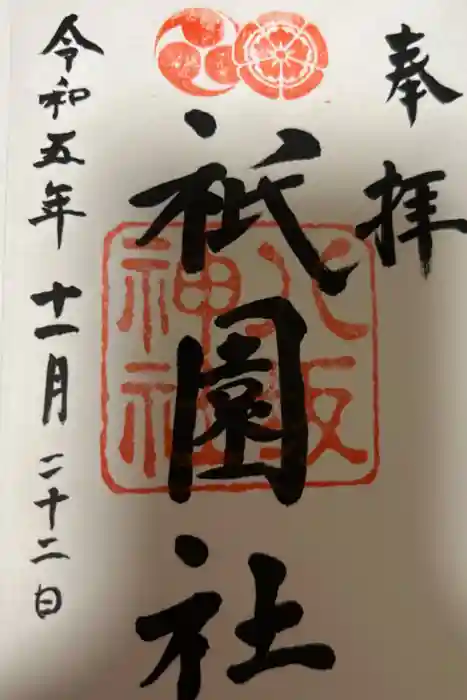 奉拝
祇園社
八坂神社
令和五年十一月二十二日